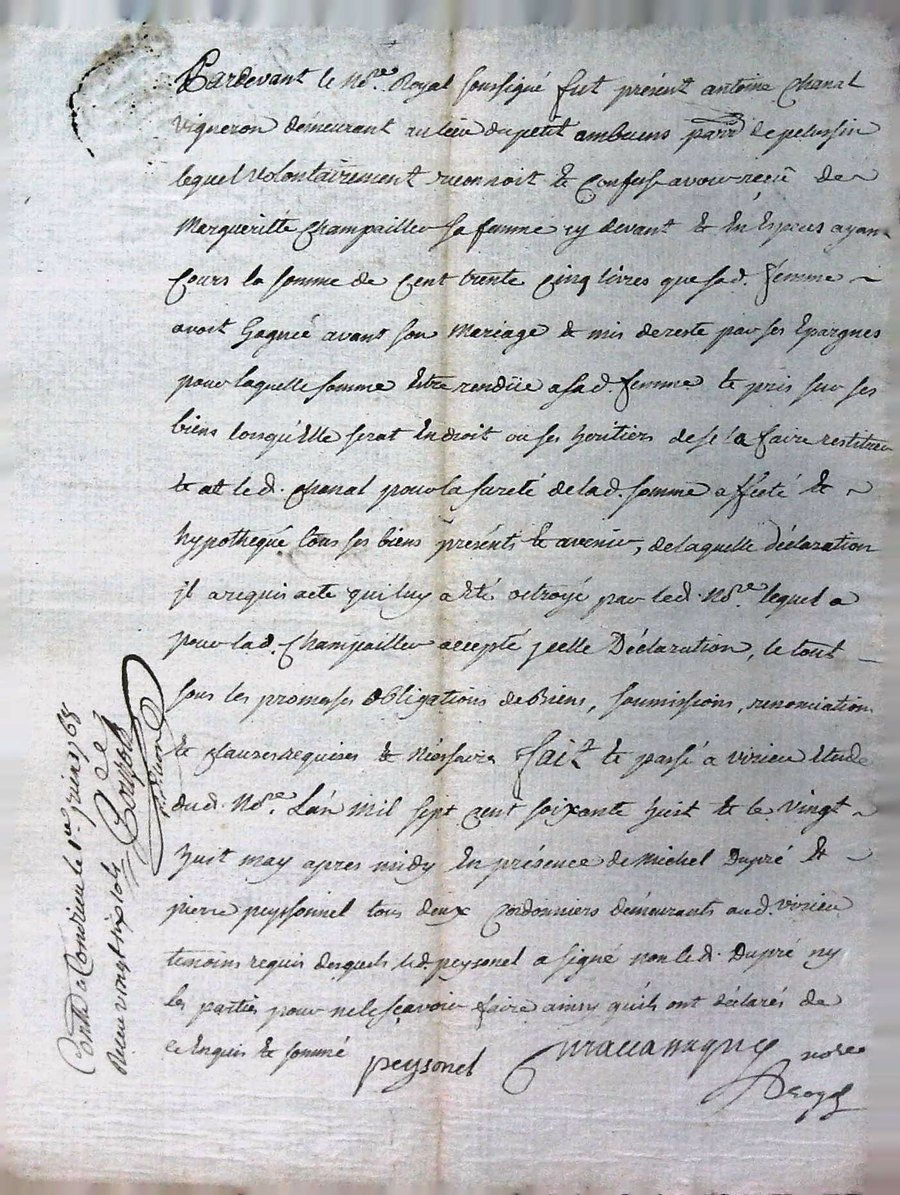 Pardevant le No.re Royal soussigné fut présent antoine Chanal
vigneron démeurant au lieu du petit ambuens parr. de pelussin
lequel volontairement reconnoit & confesse avoir reçu de
Margueritte Champailler sa femme cy devant & en Espèces ayan
Cours la somme de cent trente cinq livres que sad. femme
avoit Gagnéé avant son Mariage & mis de reste par ses Epargnes
pour laquelle somme Estre rendüe a sad. femme & pris sur ses
biens lorsqu'Elle serat En droit ou ses heritiers de se la faire restituer
& at led. Chanal pour la sureté de lad. somme affecté &
hypothequé tous ses biens présents & avenir, de laquelle déclaration
jl a requis acte qui luy a été octroyé par led. No.re lequel a
pour lad. Champailler accepté jcelle Déclaration, le tout
sous les promesses obligations de Biens, soumissions, renonciation
& clauses requises & nécessaire fait & passé a virieu Etude
dud. No.re L'an mil sept cent soixante huit & le vingt
huit may apres midy En présence de Michel Dupré &
pierre peyssonnel tous deux Cordonniers démeurants aud. virieu
témoins requis desquels led. peysonel a signé non led. Dupré ny
les parties pour ne le sçavoir faire ainsy qu'ils ont déclarés de
ce Enquis & sommé
peysonel
no.re
Royal
Con.lé a Condrieu le 1er juin 1768
Reçu vingt six sols